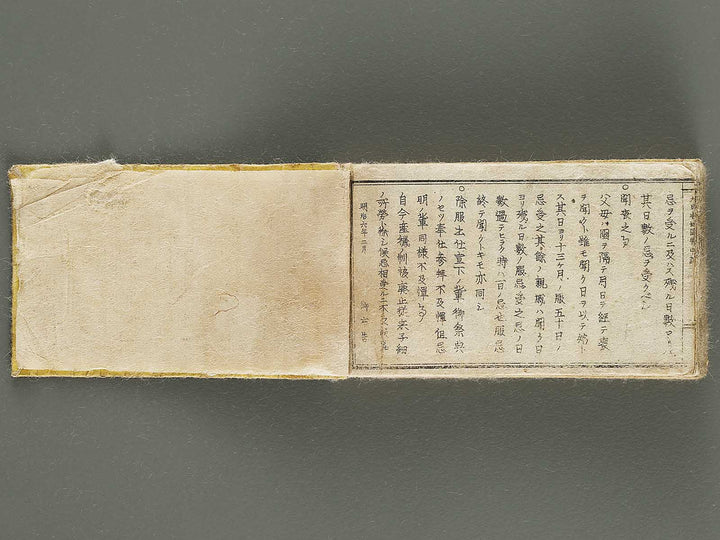 忌ヲ受ルニ及ハス残ル日数
其日数ノ忌ヲ受クヘシ
○聞喪之事
父母ハ国ヲ隔テ月日ヲ経テ喪
ヲ聞クト雖モ聞ク日ヲ以テ始ト
ス其日ヨリ十三ケ月ノ服五十日ノ
忌受之其餘ノ親戚ハ聞ク日
ヨリ残ル日数ノ服忌受之忌ノ日
数過テ聞ク時ハ一日ノ忌也服忌
終テ聞クトキモ亦同シ
○除服出仕宣下ノ輩御祭典
ノセツ奉仕参拝不及憚但忌
明ノ輩同様不及憚事
自今産穢ノ制被廃止従来子細
明治六年二月